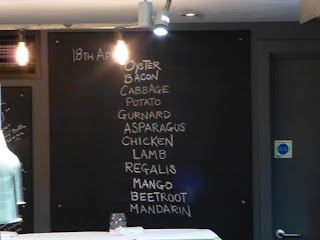 18TH APR
OYSTER
BACON
CABBAGE
POTATO
GURNARD
ASPARAGUS
CHICKEN
LAMB
REGALIS
MANGO
BEETROOT
MANDARIN